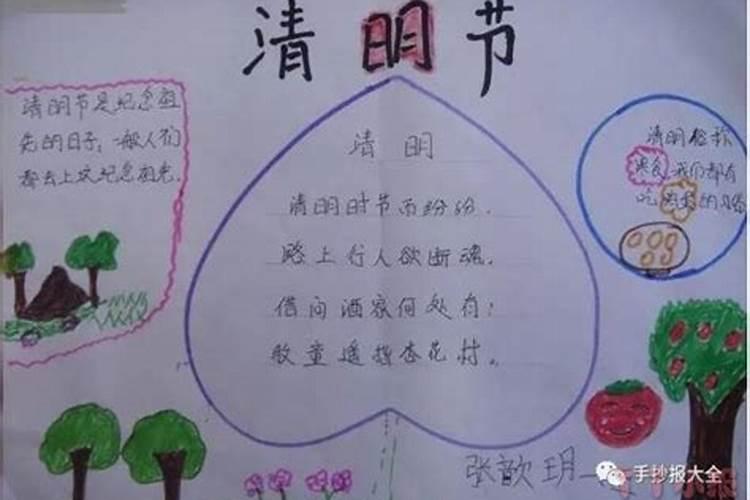 清明节
清明节是纪念祖
先的日子，一般人们
都去上坟纪念祖先．
清 明
清明时节雨纷纷．
路上行人欲断魂．
借问酒家何处有；
牧童遥指杏花村。
清明俗称
寒食．我们都有
吃鸡蛋的习俗
张歆玥
手抄报大全